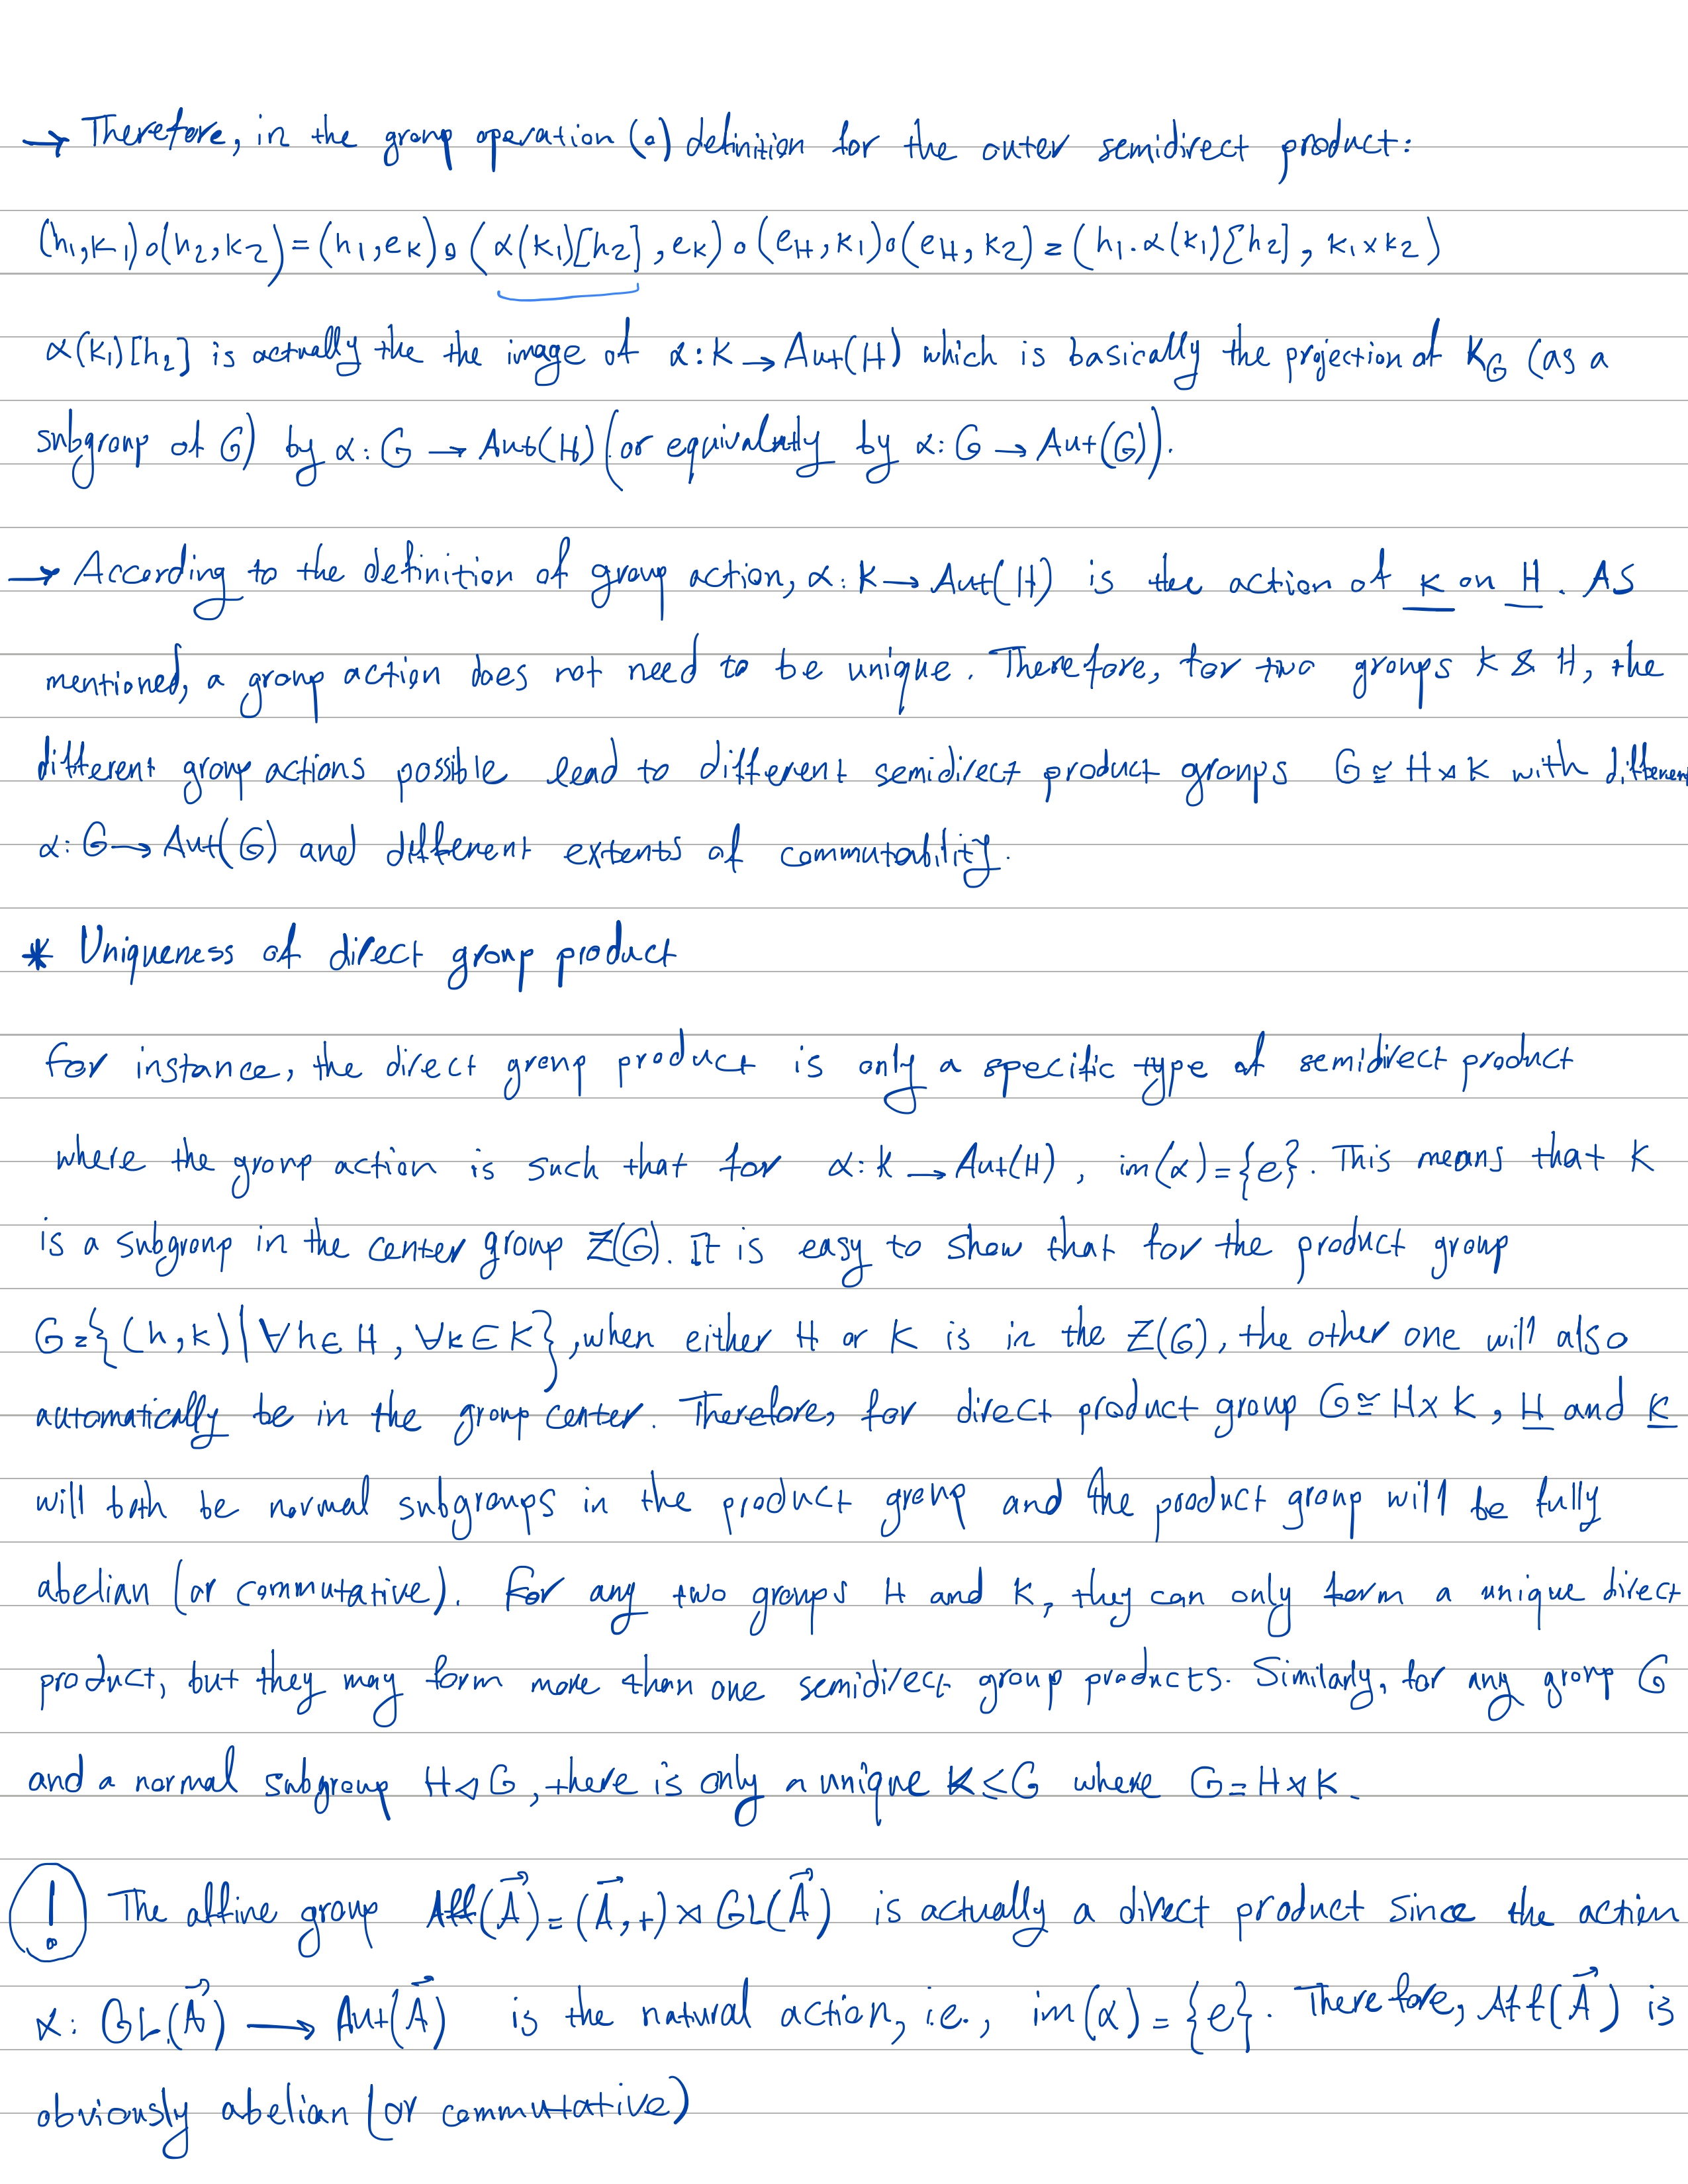 → Therefore, in the group operation (∘) definition for the outer semidirect product:
(h₁,k₁)∘(h₂,k₂) = (h₁,e_K)∘(α(k₁)[h₂],e_K)∘(e_H,k₁)∘(e_H,k₂) = (h₁.α(k₁)[h₂], k₁×k₂)
α(k₁)[h₂] is actually the the image of α:K→Aut(H) which is basically the projection of K_G (as a
subgroup of G) by α:G→Aut(H) (or equivalntly by α:G→Aut(G)).
→ According to the definition of group action, α:K→Aut(H) is the action of K on H. AS
mentioned, a group action does not need to be unique. Therefore, for two groups K & H, the
different group actions possible lead to different semidirect product groups G≅H⋊K with different
α:G→Aut(G) and different extents of commutability.
* Uniqueness of direct group product
for instance, the direct group product is only a specific type of semidirect product
where the group action is such that for α:K→Aut(H), im(α)={e}. This means that K
is a subgroup in the center group Z(G). It is easy to show that for the product group
G={(h,k)|∀h∈H,∀k∈K}, when either H or K is in the Z(G), the other one will also
automatically be in the group center. Therefore, for direct product group G≅H×K, H and K
will both be normal subgroups in the product group and the product group will be fully
abelian (or commutative). For any two groups H and K, they can only form a unique direct
product, but they may form more than one semidirect group products. Similarly, for any group G
and a normal subgroup H⊲G, there is only a unique K≤G where G=H⋊K.
! The affine group Aff(A⃗)=(A⃗,+)⋊GL(A⃗) is actually a direct product since the action
α: GL(A⃗)⟶Aut(A⃗) is the natural action, i.e., im(α)={e}. Therefore, Aff(A⃗) is
obviously abelian (or commutative)